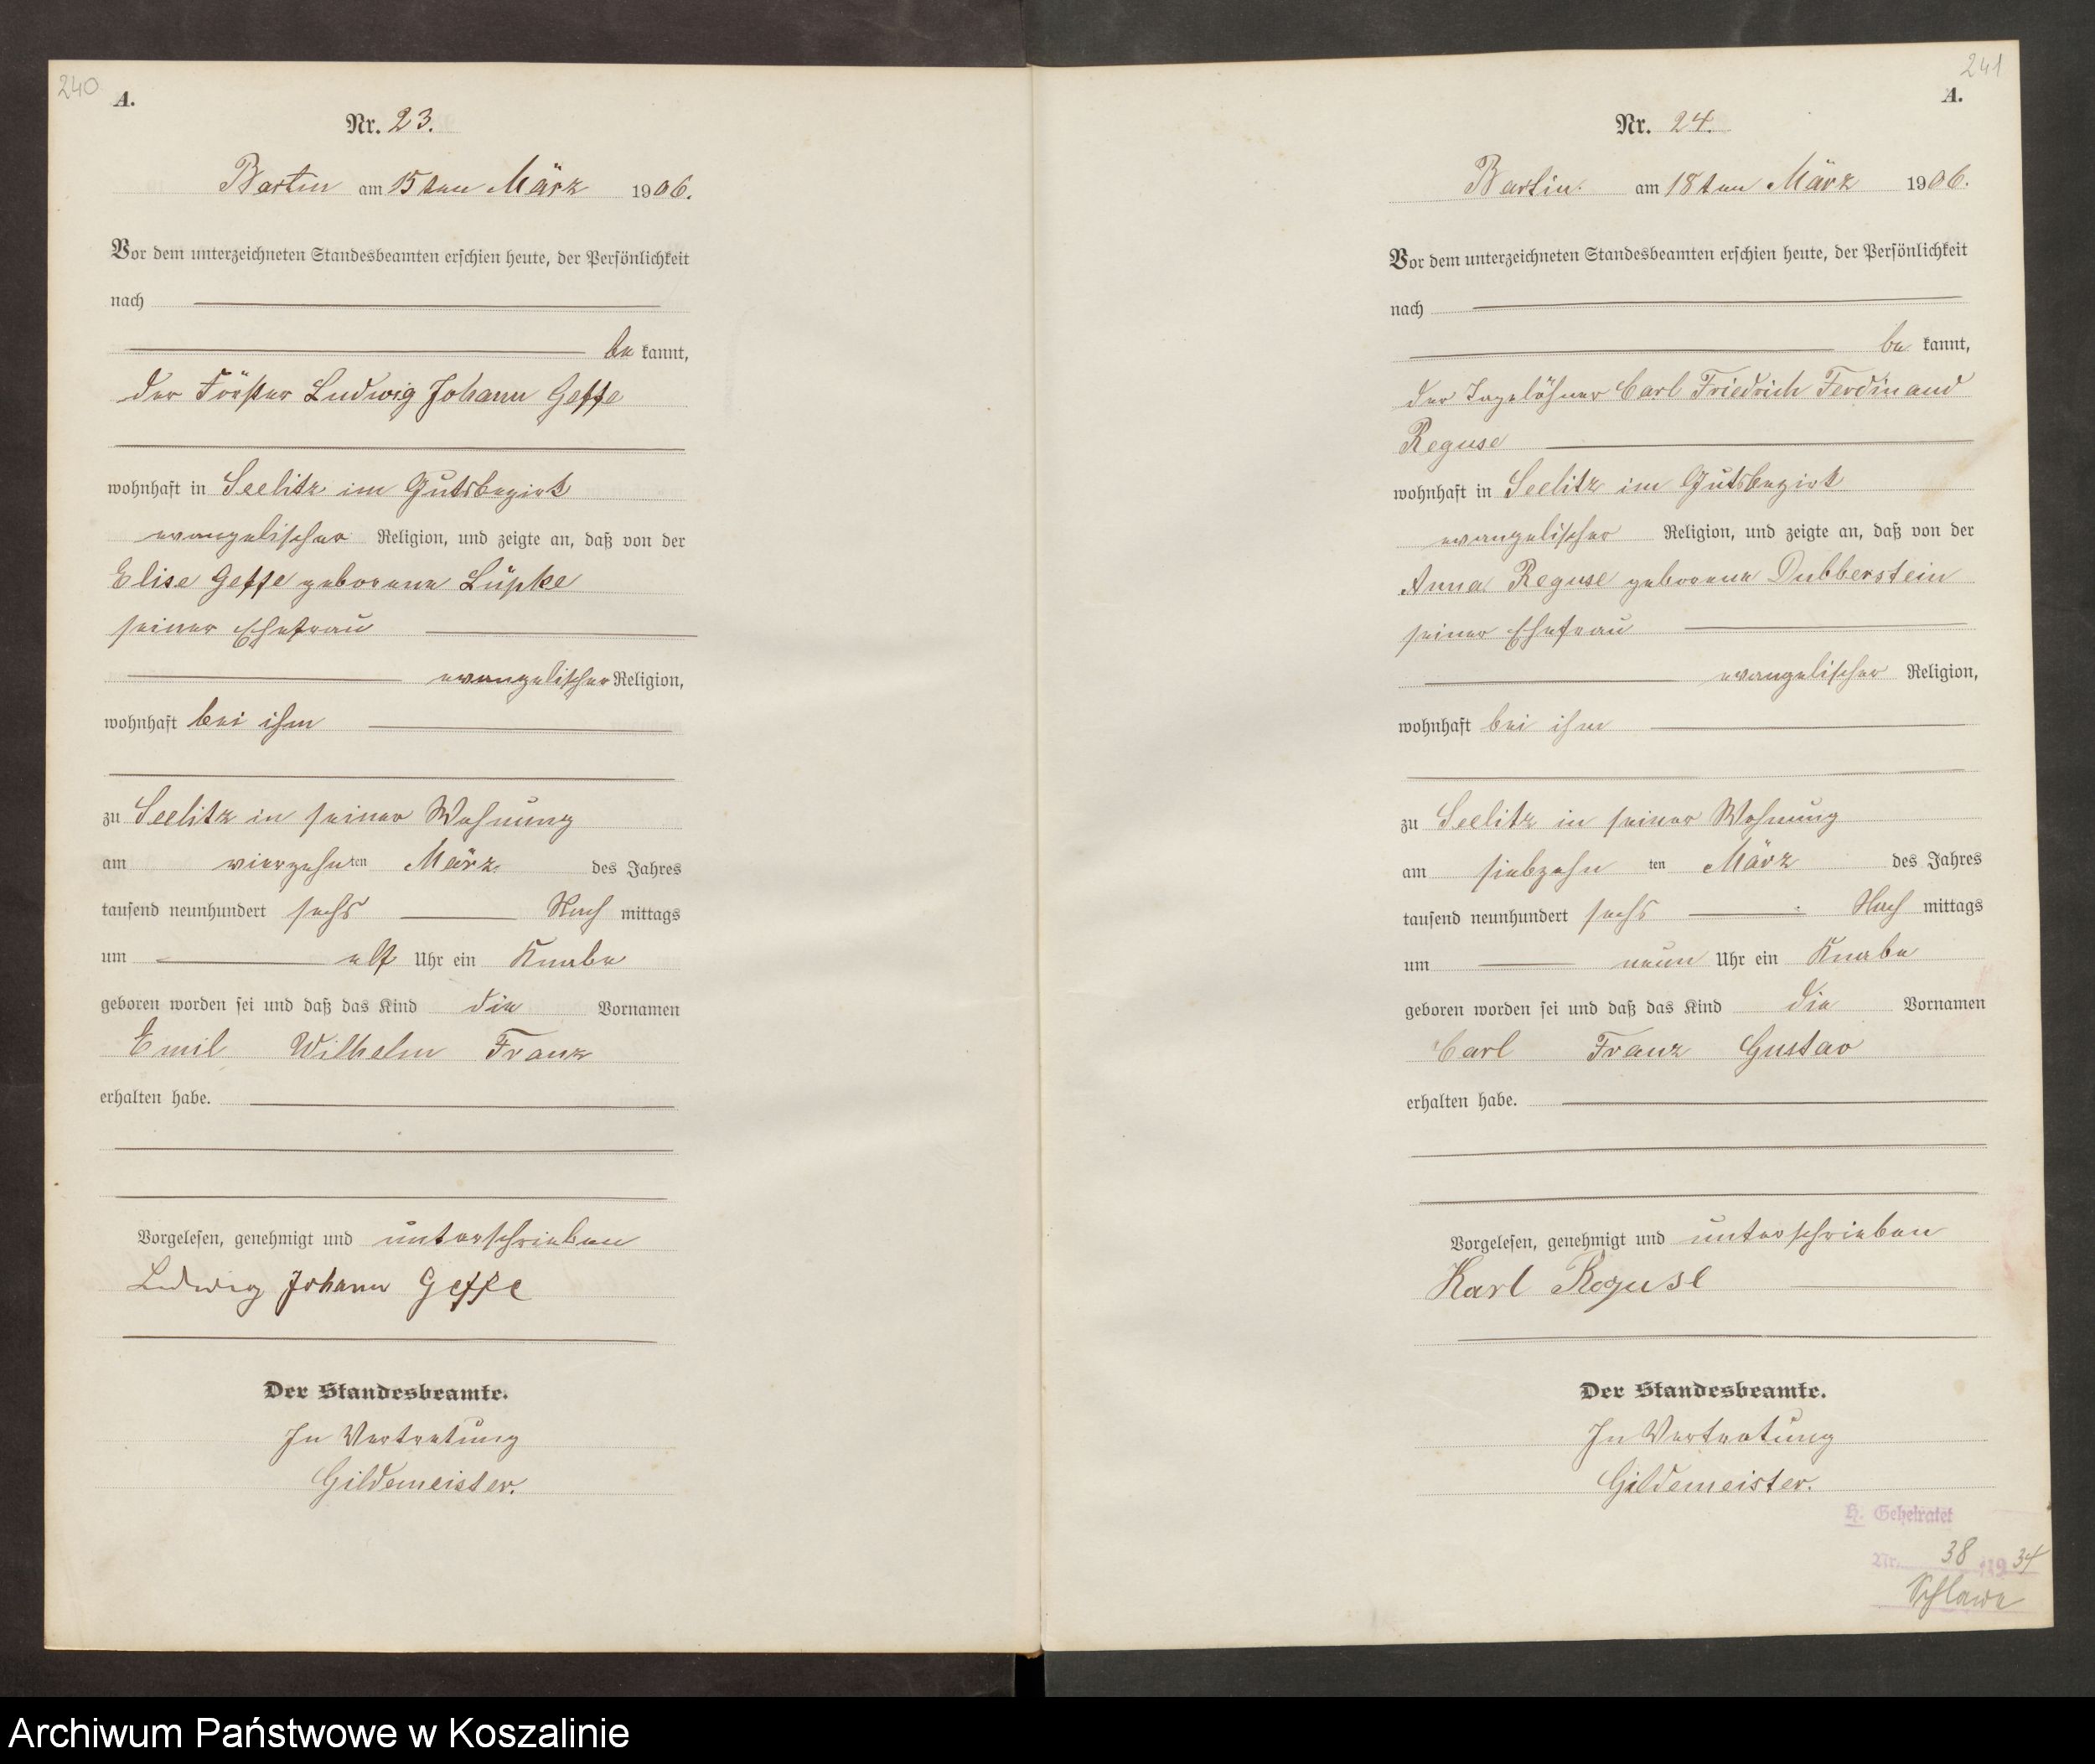 240
A.
Nr. 23.
Bartin am 15ten März 1906.
Vor dem unterzeichneten Standesbeamten erschien heute, der Persönlichkeit
nach
be kannt,
der Förster Ludwig Johann Geffe
wohnhaft in Seelitz im Gutsbezirk
evangelischer Religion, und zeigte an, daß von der
Elise Geffe geborene Lüpke
seiner Ehefrau
evangelischer Religion,
wohnhaft bei ihm
zu Seelitz in seiner Wohnung
am vierzehn ten März des Jahres
tausend neunhundert sechs Nach mittags
um elf Uhr ein Knabe
geboren worden sei und daß das Kind die Vornamen
Emil Wilhelm Franz
erhalten habe.
Vorgelesen, genehmigt und unterschrieben
Ludwig Johann Geffe
Der Standesbeamte.
In Vertretung
Gildemeister.
241
A.
Nr. 24.
Bartin am 18ten März 1906.
Vor dem unterzeichneten Standesbeamten erschien heute, der Persönlichkeit
nach
be kannt,
der Tagelöhner Carl Friedrich Ferdinand
Reguse
wohnhaft in Seelitz im Gutsbezirk
evangelischer Religion, und zeigte an, daß von der
Anna Reguse geborene Dubberstein
seiner Ehefrau
evangelischer Religion,
wohnhaft bei ihm
zu Seelitz in seiner Wohnung
am siebzehn ten März des Jahres
tausend neunhundert sechs Nach mittags
um neun Uhr ein Knabe
geboren worden sei und daß das Kind die Vornamen
Carl Franz Gustav
erhalten habe.
Vorgelesen, genehmigt und unterschrieben
Karl Reguse
Der Standesbeamte.
In Vertretung
Gildemeister.
H. Geheiratet
Nr. 38 1934
Schlawe
Archiwum Państwowe w Koszalinie